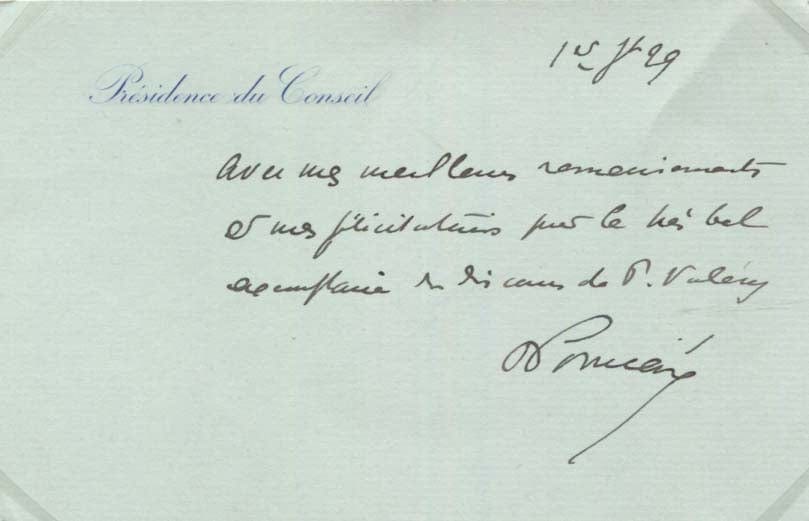 1er Jt 29
Présidence du Conseil
Avec mes meilleurs remerciements
et mes félicitations pour le très bel
exemplaire du discours de P. Valéry
RPoincaré